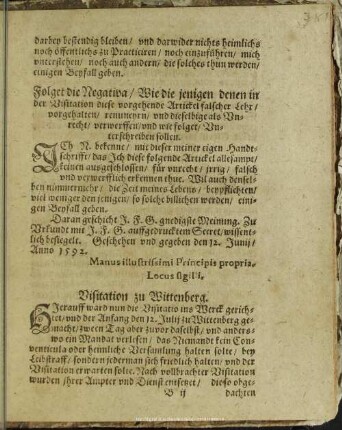 darbey bestendig bleiben / vnd darwider nichts heimlichs
noch öffentlichs zu Practiciren / noch einzuführen / mich
vnterstehen / noch auch andern / die solches thun werden /
einigen Beyfall geben.
Folget die Negativa / Wie die jenigen denen in
der Visitation diese vorgehende Artickel falscher Lehr /
vorgehalten / renuncyrn / vnd dieselbige als Vn-
recht / verwerffen / vnd wie folget / Vn-
terschreiben sollen.
ICh N. bekenne / mit dieser meiner eigen Handt-
schrifft / das Jch diese folgende Artickel allesampt /
keinen ausgeschlossen / für vnrecht / jrrig / falsch
vnd verwerfflich erkennen thue. Wil auch densel-
ben nimmermehr / die Zeit meines Lebens / beypflichten /
viel weniger den jenigen / so solche billichen werden / eini-
gen Beyfall geben.
Daran geschicht J. F. G. gnedigste Meinung. Zu
Vrkundt mit J. F. G. auffgedrucktem Secret / wissent-
lich besiegelt. Geschehen vnd gegeben den 12. Junij /
Anno 1592.
Manus illustrissimi Principis propria.
Locus sigilli.
Visitation zu Wittenberg.
HIerauff ward nun die Visitation ins Werck gerich-
tet / vnd der Anfang den 12. Julij zu Wittenberg ge-
macht / zween Tag aber zuvor daselbst / vnd anders-
wo ein Mandat verlesen / das Niemandt kein Con-
venticula oder heimliche Versamlung halten solte / bey
Leibstraff / sondern jederman sich friedlich halten / vnd der
Visitation erwarten solte. Nach vollbrachter Visitation
wurden jhrer Ampter vnd Dienst entsetzet / diese obge-
B ij dachten